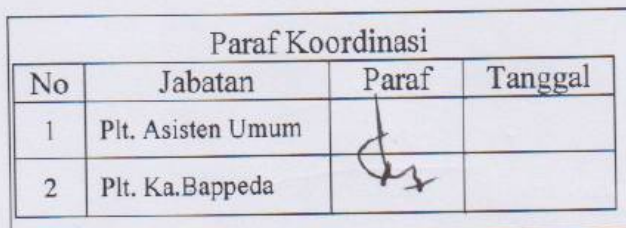 Paraf Koordinasi
No Jabatan Paraf Tanggal
1 Plt. Asisten Umum
2 Plt. Ka.Bappeda